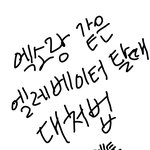 엑소랑 같은
엘레베이터 탈때
대처법